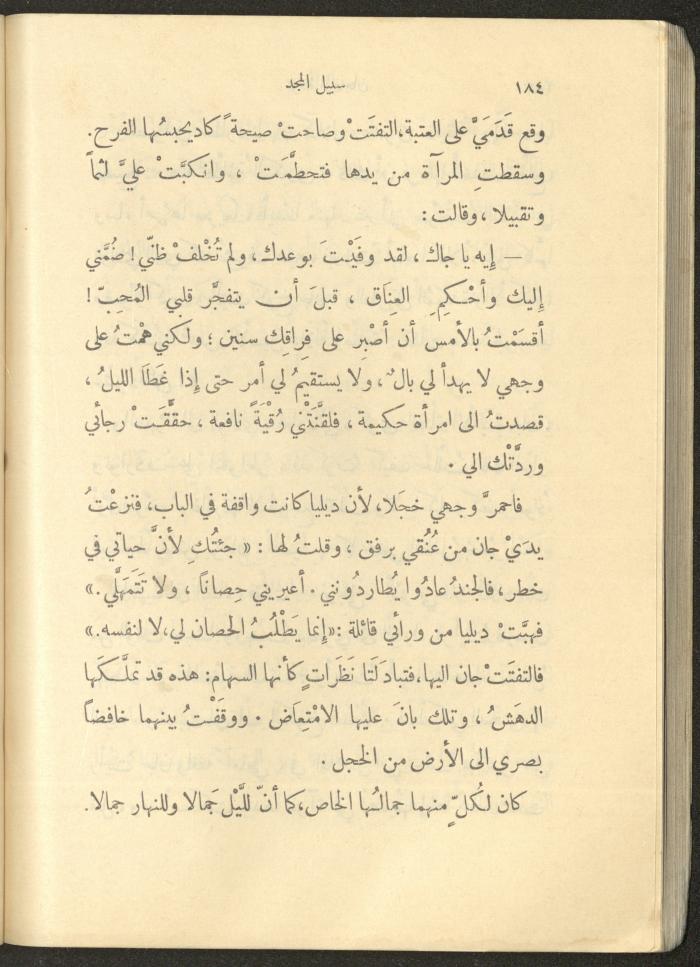 ١٨٤
سبيل المجد
وقع قَدَمَيَّ على العتبة، التفتَتْ وصاحتْ صيحةً كاد يحبسُها الفرح.
وسقطتِ المرآة من يدها فتحطَّمَتْ ، وانكبَّتْ عليَّ لثماً
وتقبيلا ، وقالت :
— إِيه يا جاك ، لقد وفَيْتَ بوعدك ، ولم تُخْلفْ ظنّي ! ضُمَّني
إِليك وأحْكِمِ العِنَاق ، قبلَ أن يتفجَّر قلبي المُحِبّ !
أقسَمْتُ بالأمس أن أصْبِر على فِراقِك سنين ؛ ولكني هْمتُ على
وجهي لا يهدأ لي بالٌ ، ولا يستقيمُ لي أمر حتى إِذا غَطَا الليلُ ،
قصدتُ الى امرأة حكيمة ، فلقَّنَتْني رُقْيَةً نافعة ، حقَّقَتْ رجائي
وردَّتْك الي .
فاحمرَّ وجهي خجَلا، لأن ديليا كانت واقفة في الباب، فنزعْتُ
يدَيْ جان من عُنُقي برفق ، وقلتُ لها : « جئتُكِ لأنَّ حياتي في
خطر، فالجندُ عادُوا يُطاردُونني . أعيريني حِصاناً ، ولا تَتَمَهَّلي .»
فهبَّتْ ديليا من ورأئي قائلة :«إِنما يَطْلُبُ الحصان لي، لا لنفسه.»
فالتفتَتْ جان اليها، فتبادَلَتا نَظَراتٍ كأنها السهام: هذه قد تملَّكَها
الدهَشُ ، وتلك بانَ عليها الامْتِعَاض . ووقَفْتُ بينهما خافضاً
بصري الى الأرض من الخجل .
كان لكُلٍّ منهما جمالُها الخاص، كما أنّ للَّيْل جَمالا وللنهار جمالا.